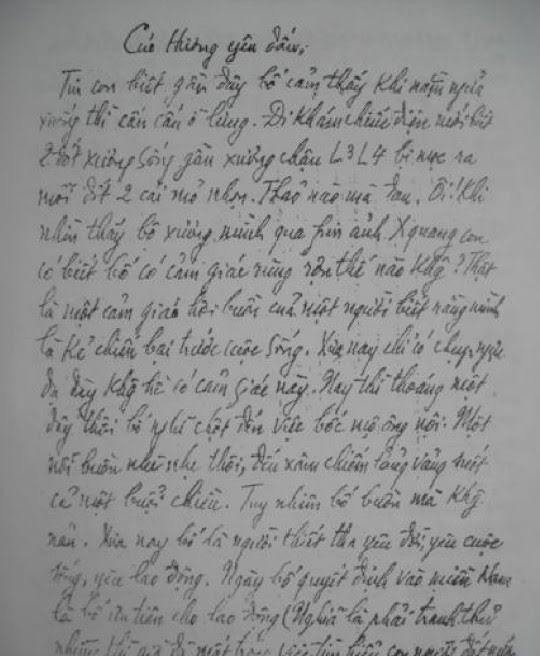 Cúc Hương yêu dấu,
Tin con biết gần đây bố cảm thấy khi nằm ngửa
xuống thì cân cấn ở lưng. Đi khám chiếu điện mới biết
2 đốt xương sống gần xương chậu L3 L4 bị mọc ra
mỗi đốt 2 cái mỏ nhọn. Thảo nào mà đau. Ôi! Khi
nhìn thấy bộ xương mình qua fim ảnh Xquang con
có biết bố có cảm giác rùng rợn thế nào khg? Thật
là một cảm giác hơi buồn của một người biết rằng mình
là kẻ chiến bại trước cuộc sống. Xưa nay chỉ có
khg hề có cảm giác này. Nay thì thoáng một
đây thôi bố nghĩ chợt đến việc bốc mộ ông nội. Một
nỗi buồn nhè nhẹ thôi, đến xâm chiếm lảng vảng mất
cả một buổi chiều. Tuy nhiên bố buồn mà khg
nản. Xưa nay bố là người thiết tha yêu đời, yêu cuộc
sống, yêu lao động. Ngày bố quyết định vào miền Nam
là bố ưu tiên cho lao động (Nghĩa là phải tranh thủ
những thì giờ để